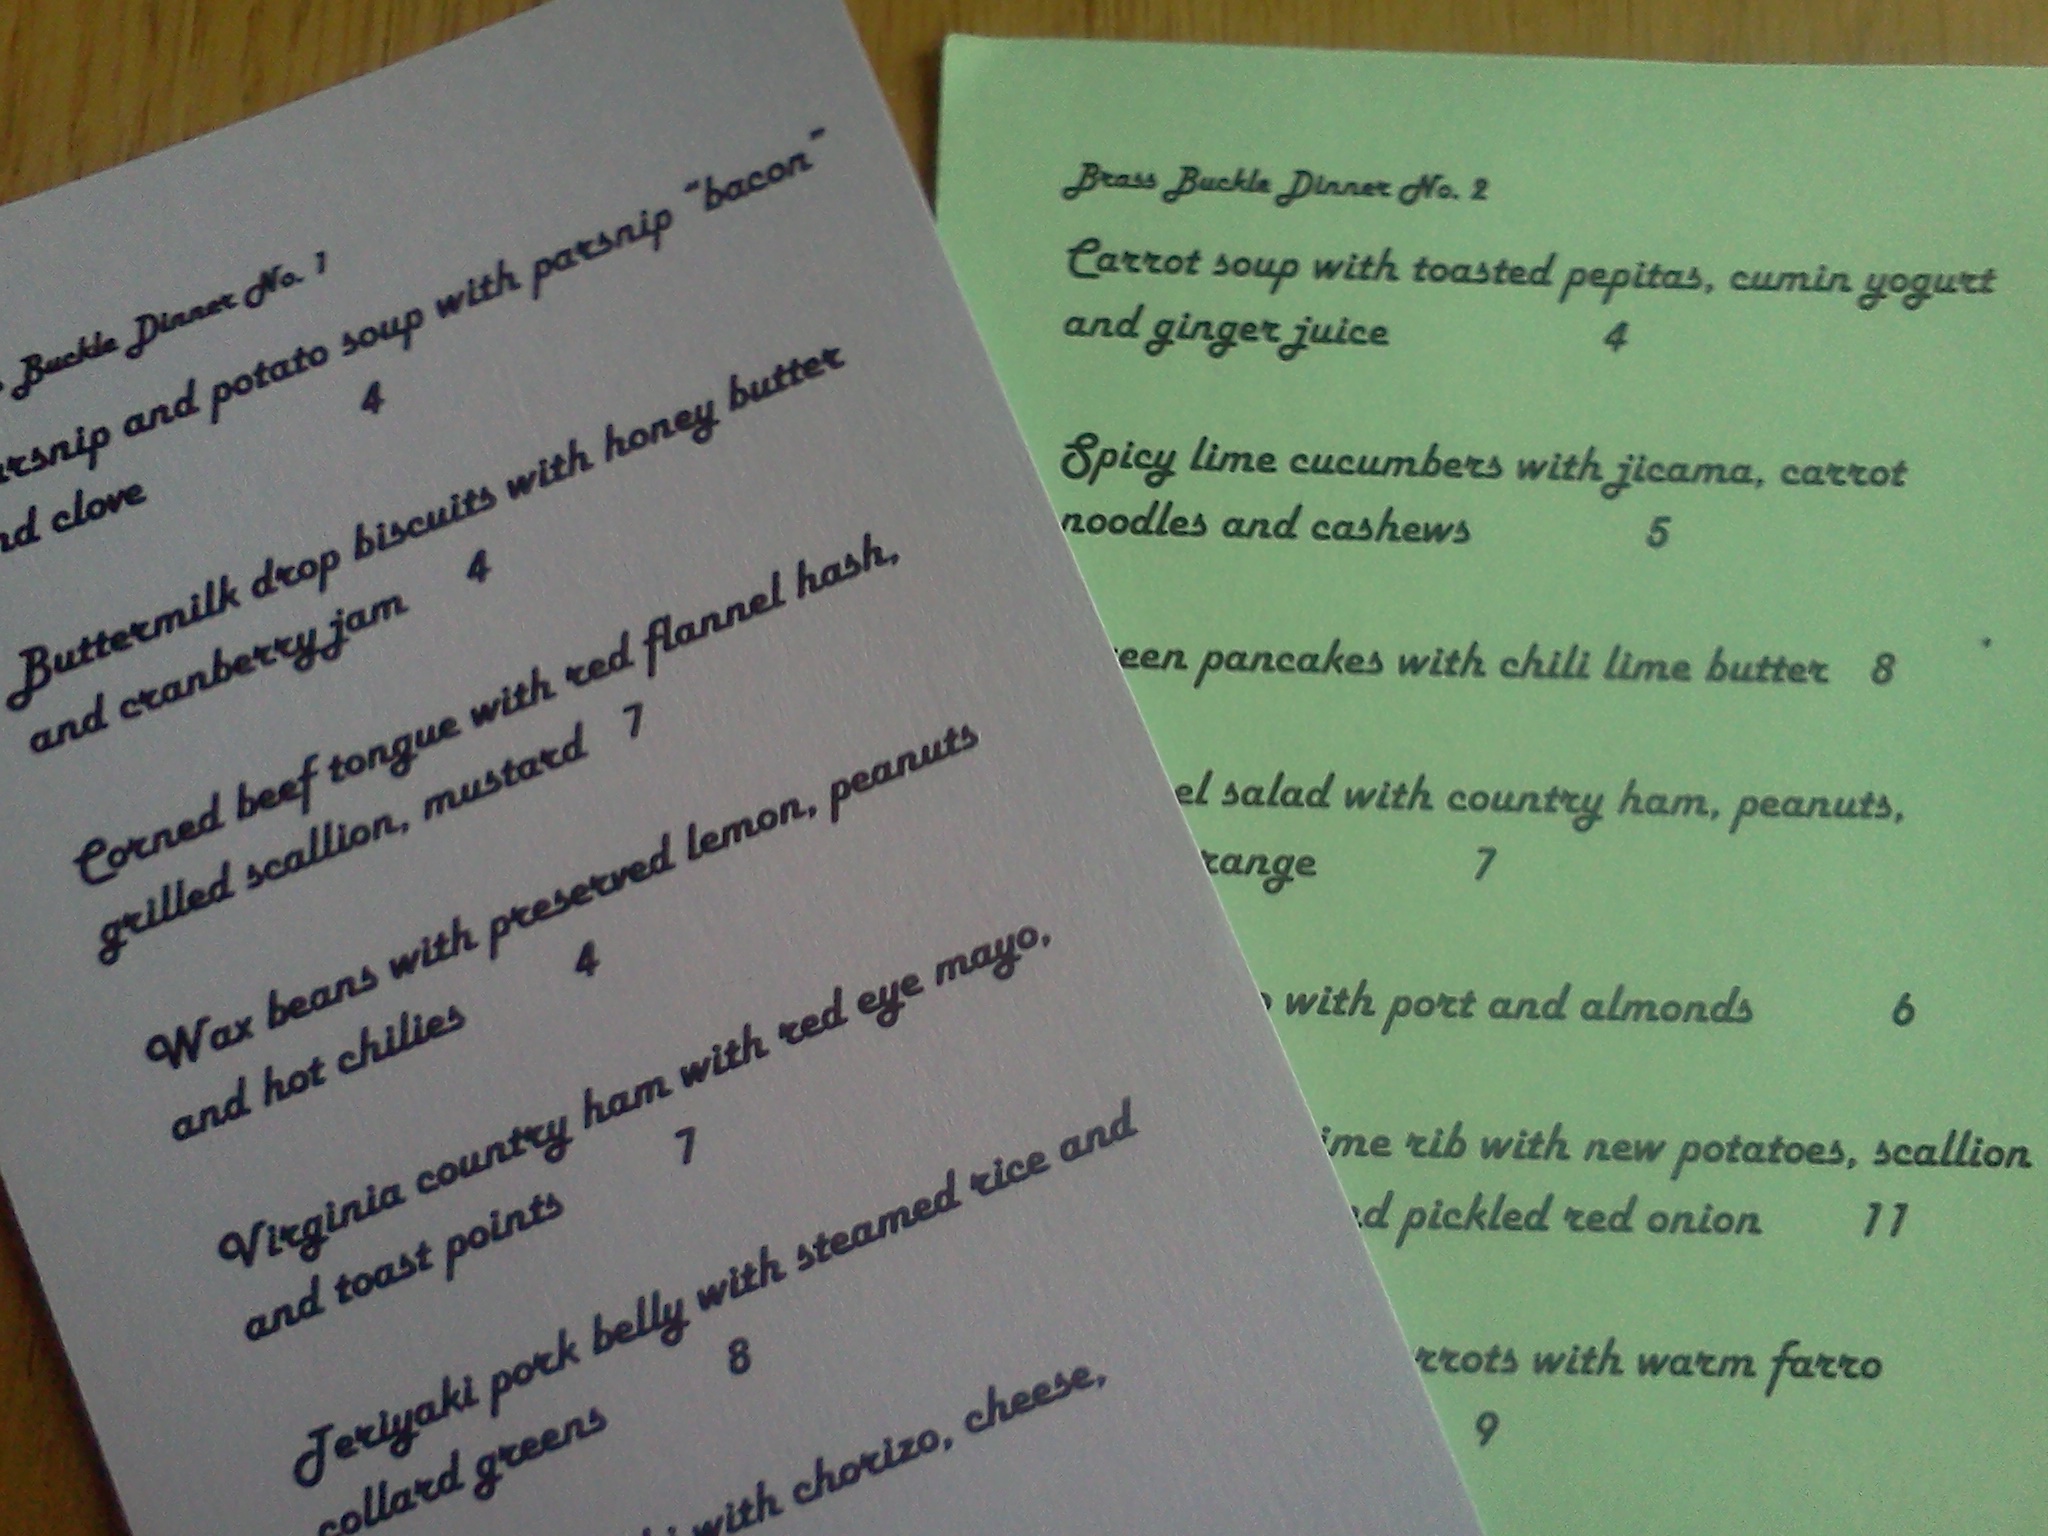 Buckle Dinner No. 1
and potato soup with parsnip "bacon"
clove 4
Buttermilk drop biscuits with honey butter
and cranberry jam 4
Corned beef tongue with red flannel hash,
grilled scallion, mustard 7
Wax beans with preserved lemon, peanuts
and hot chilies 4
Virginia country ham with red eye mayo,
and toast points 7
Teriyaki pork belly with steamed rice and
collard greens 8
with chorizo, cheese,
Brass Buckle Dinner No. 2
Carrot soup with toasted pepitas, cumin yogurt
and ginger juice 4
Spicy lime cucumbers with jicama, carrot
noodles and cashews 5
pancakes with chili lime butter 8
salad with country ham, peanuts,
7
with port and almonds 6
rib with new potatoes, scallion
pickled red onion 11
with warm farro
9